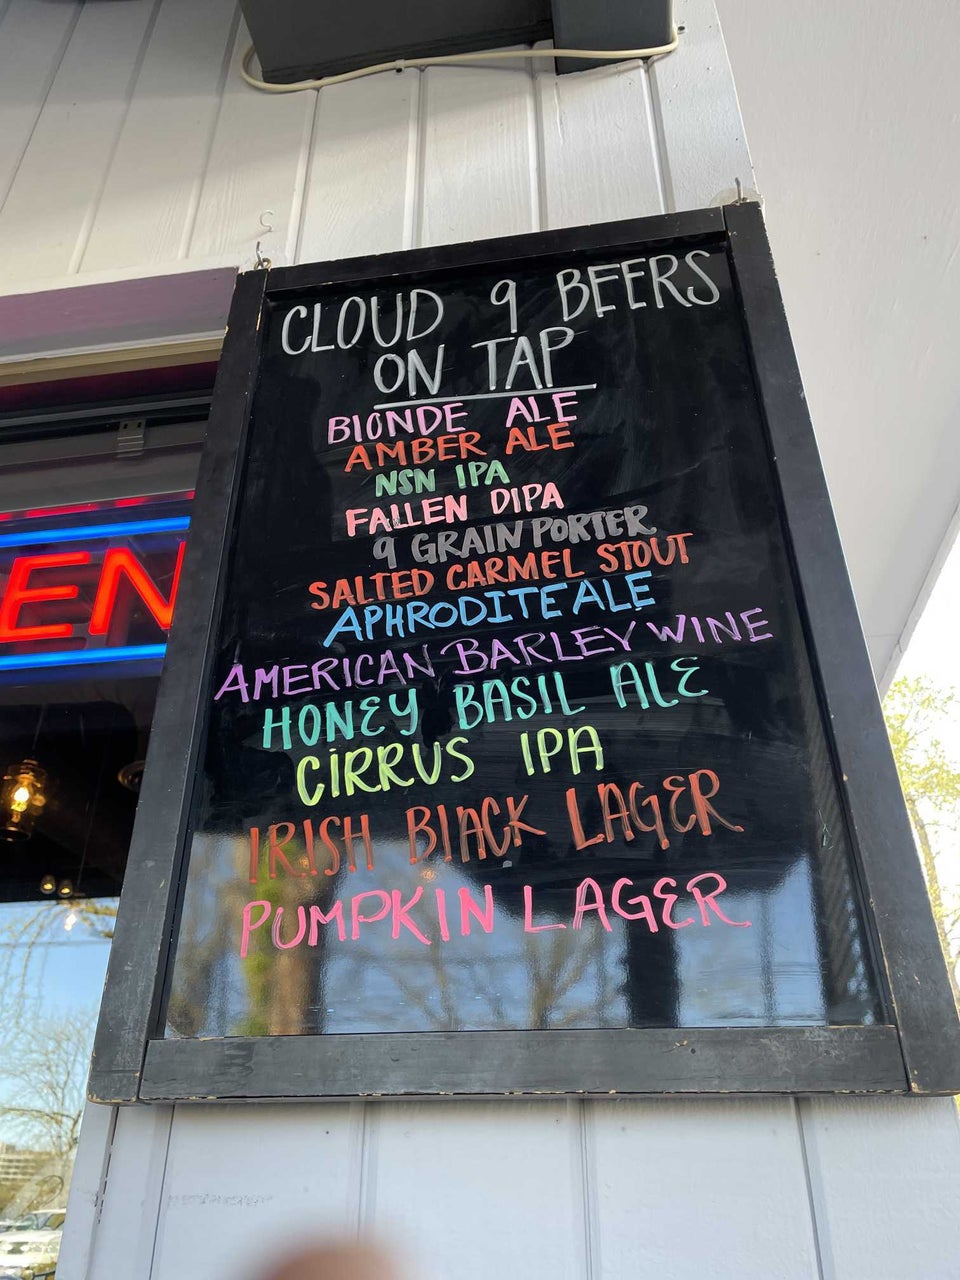 CLOUD 9 BEERS
ON TAP
BLONDE ALE
AMBER ALE
NSN IPA
FALLEN DIPA
9 GRAIN PORTER
SALTED CARMEL STOUT
APHRODITE ALE
AMERICAN BARLEY WINE
HONEY BASIL ALE
CIRRUS IPA
IRISH BLACK LAGER
PUMPKIN LAGER
EN